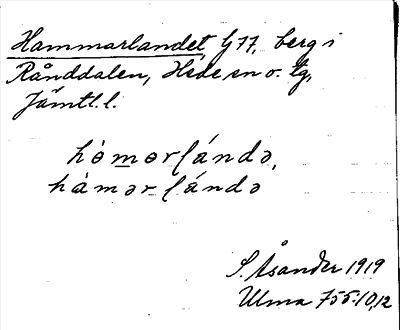 Hammarlandet G 77, berg i
Rånddalen, Hede sn o. tg,
Jämtl. l.
hȯmərlándə,
hȧmər-lándə
S. Åsander 1919
Ulma 755:10,12